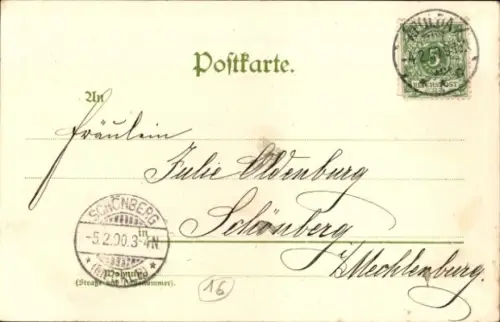 5
REICHSPOST
Postkarte.
An
Fräulein
Julie Oldenburg
Schönberg
i/Mecklenburg.
SCHÖNBERG
-5.2.00.3-4N
in
Wohnung
(Straße und Hausnummer).
16